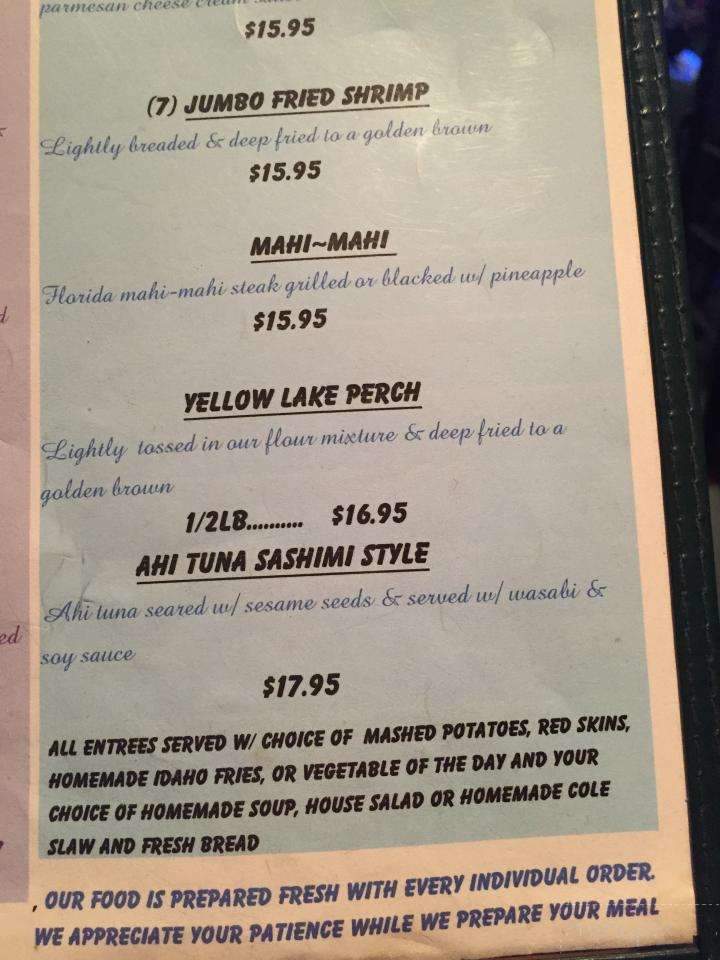 parmesan cheese cream sauce
$15.95
(7) JUMBO FRIED SHRIMP
Lightly breaded & deep fried to a golden brown
$15.95
MAHI~MAHI
Florida mahi-mahi steak grilled or blacked w/ pineapple
$15.95
YELLOW LAKE PERCH
Lightly tossed in our flour mixture & deep fried to a
golden brown
1/2LB.......... $16.95
AHI TUNA SASHIMI STYLE
Ahi tuna seared w/ sesame seeds & served w/ wasabi &
soy sauce
$17.95
ALL ENTREES SERVED W/ CHOICE OF MASHED POTATOES, RED SKINS,
HOMEMADE IDAHO FRIES, OR VEGETABLE OF THE DAY AND YOUR
CHOICE OF HOMEMADE SOUP, HOUSE SALAD OR HOMEMADE COLE
SLAW AND FRESH BREAD
, OUR FOOD IS PREPARED FRESH WITH EVERY INDIVIDUAL ORDER.
WE APPRECIATE YOUR PATIENCE WHILE WE PREPARE YOUR MEAL